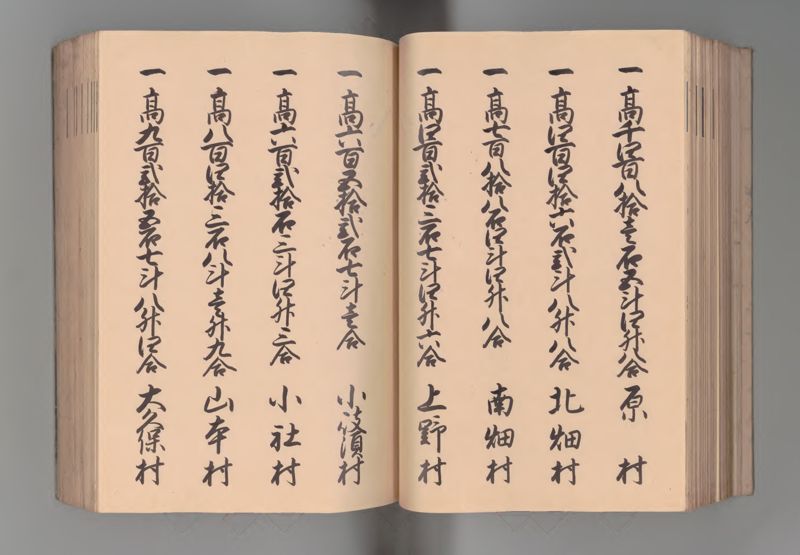 一高千四百八拾壱石五斗四升八合 原村
一高四百四拾六石弐斗八升八合 北畑村
一高七百八拾八石四斗四升八合 南畑村
一高四百弐拾三石七斗四升六合 上野村
一高六百五拾弐石七斗壱合 小 村
一高六百弐拾石三斗四升三合 小社村
一高八百四拾三石八斗壱升九合 山本村
一高九百弐拾五石七斗八升四合 大久保村